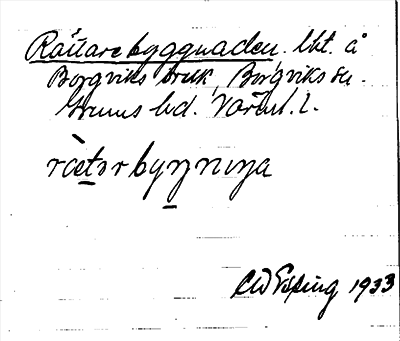 Rättarebyggnaden. lht. å
Borgviks bruk, Borgviks sn.
Grums hd. Värml. l.
ræ̀tər byŋnıŋa
CW Esping 1933